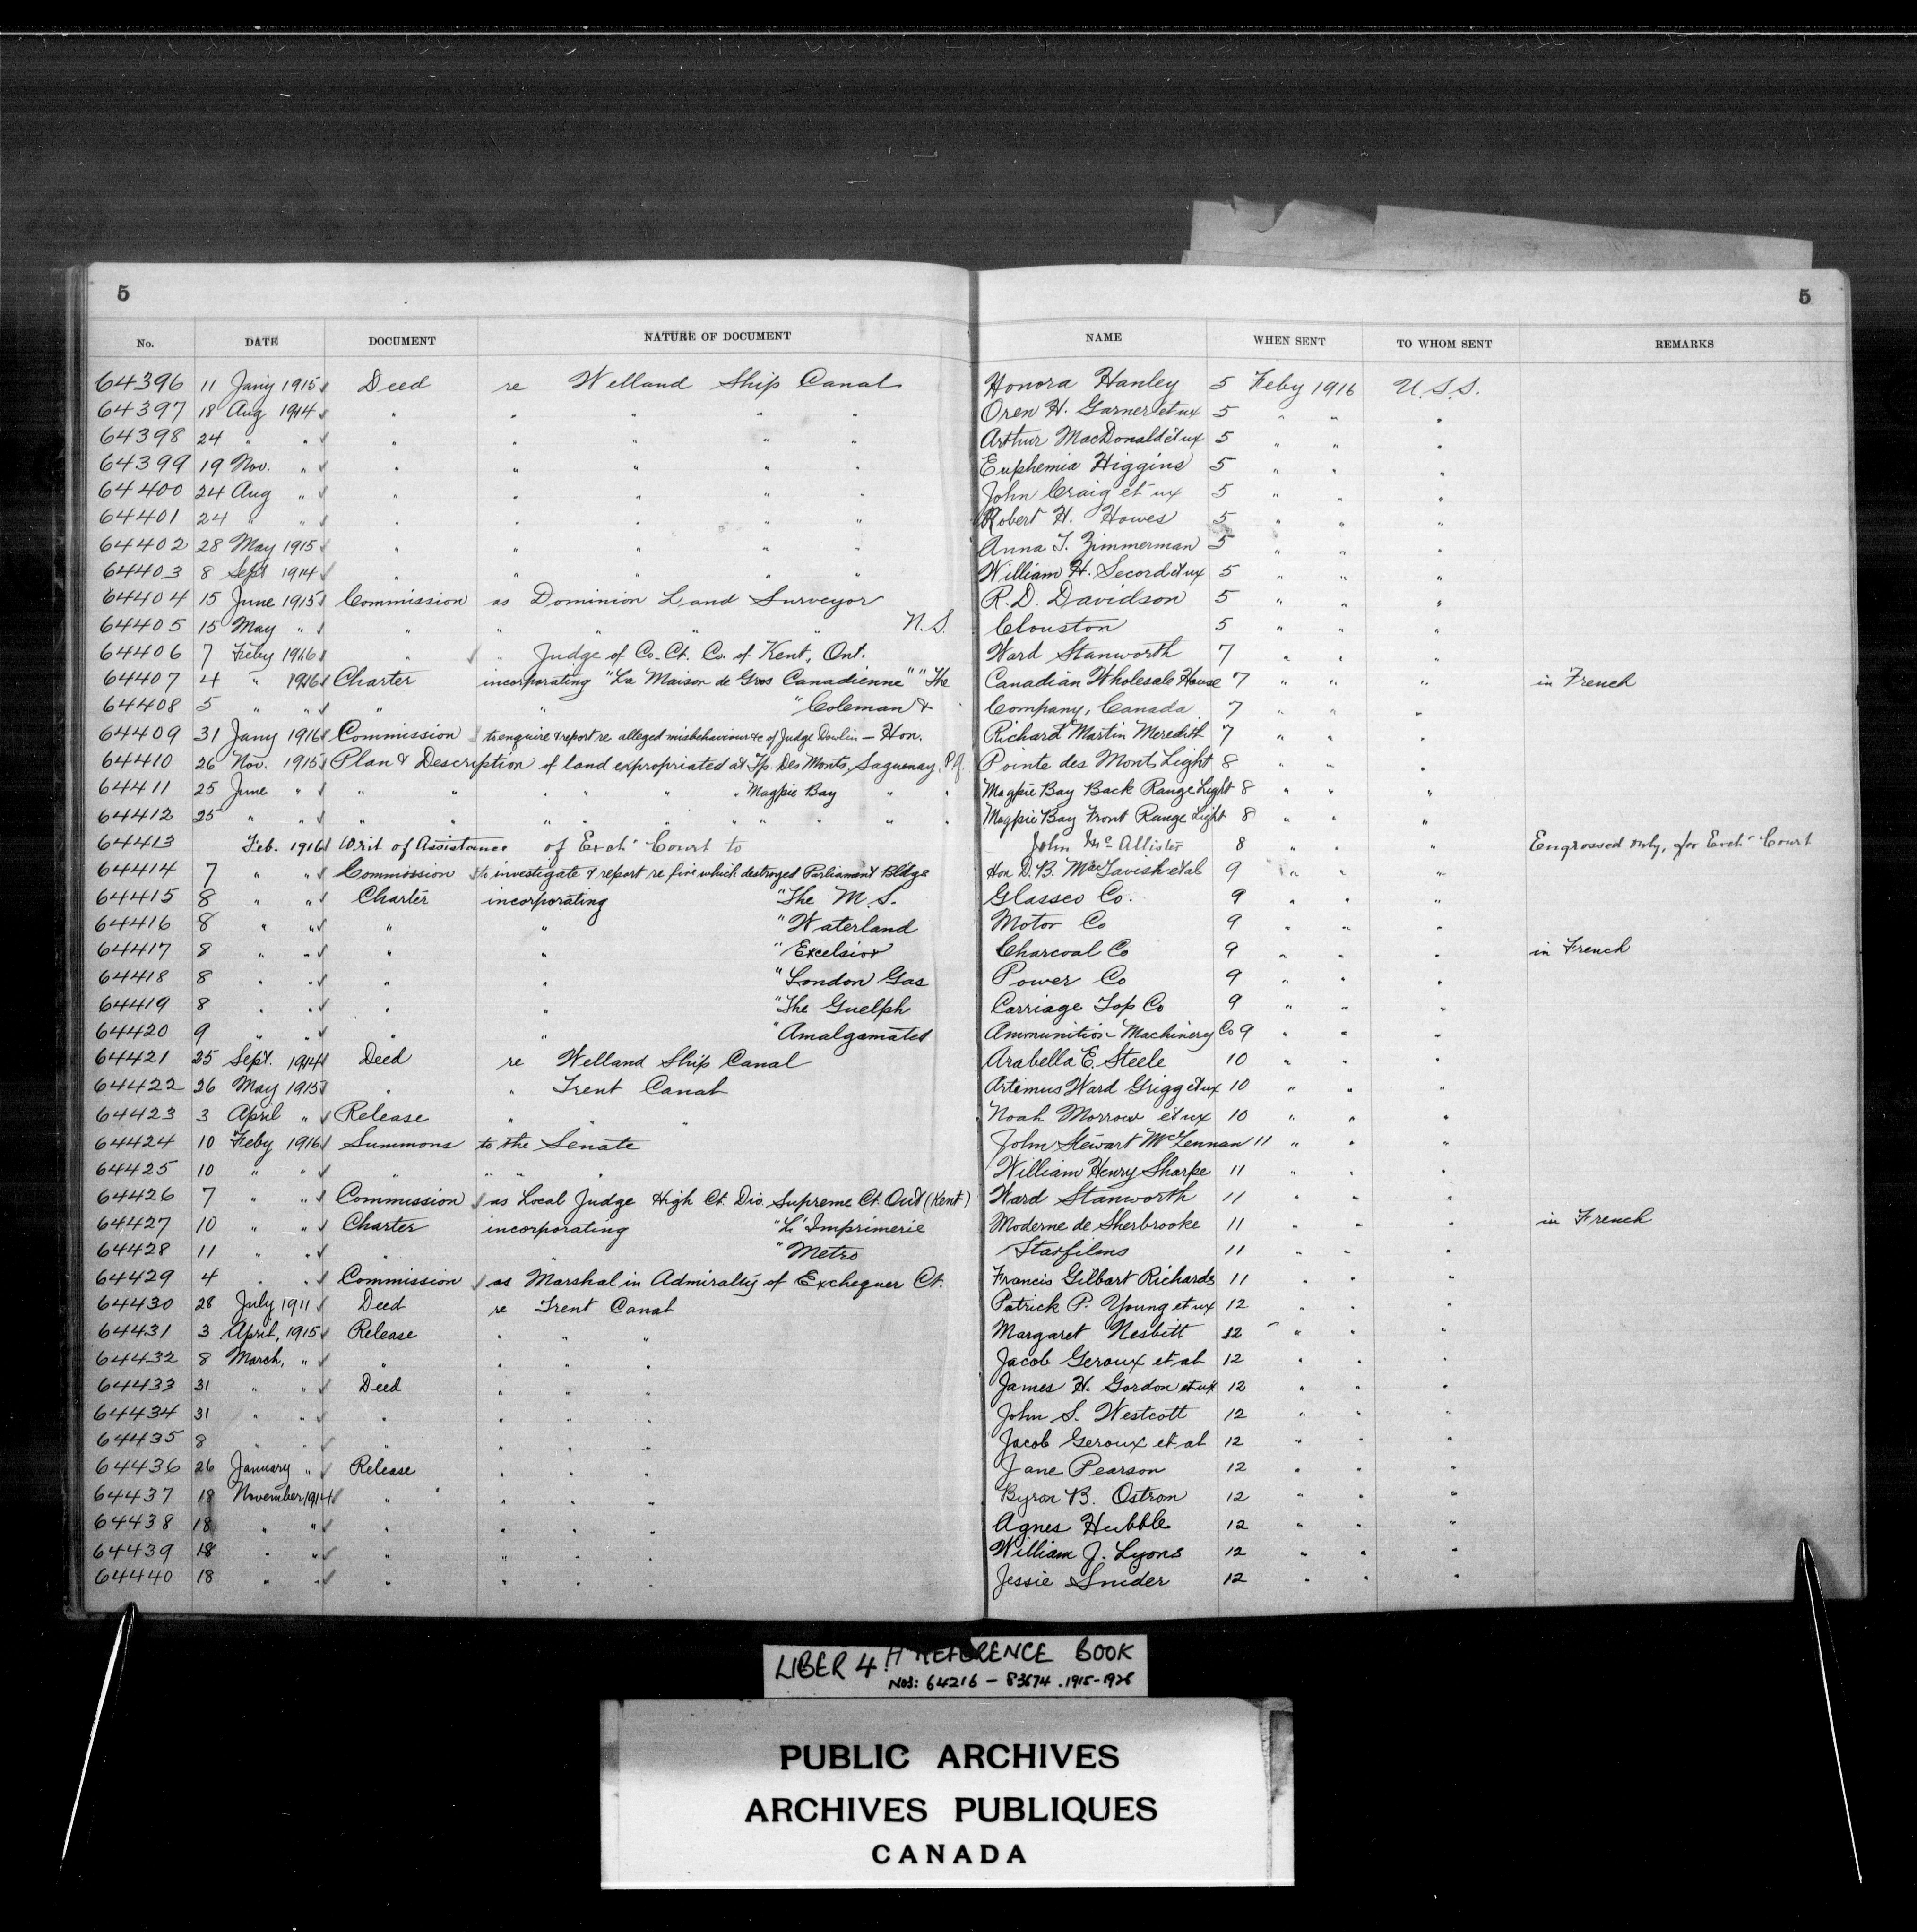 5 5
No. DATE DOCUMENT NATURE OF DOCUMENT NAME WHEN SENT TO WHOM SENT REMARKS
64396 11 Jany 1915 Deed re Welland Ship Canal Honora Hanley 5 Feby 1916 U.S.S.
64397 18 Aug 1914 " " " " " Oren H. Garner et ux 5 " " "
64398 24 " " " " " " " Arthur MacDonald et ux 5 " " "
64399 19 Nov. " " " " " " Euphemia Higgins 5 " " "
64400 24 Aug " " " " " " John Craig et ux 5 " " "
64401 24 " " " " " " " Robert H. Howes 5 " " "
64402 28 May 1915 " " " " " Anna T. Zimmerman 5 " " "
64403 8 Sept 1914 " " " " " William H. Secord et ux 5 " " "
64404 15 June 1915 Commission as Dominion Land Surveyor R. D. Davidson 5 " " "
64405 15 May " " " " " " N.S. Clouston 5 " " "
64406 7 Feby 1916 " " Judge of Co. Ct. Co. of Kent, Ont. Ward Stanworth 7 " " "
64407 4 " 1916 Charter incorporating "La Maison de Gros Canadienne" "The Canadian Wholesale House 7 " " " in French
64408 5 " " " " "Coleman & Company, Canada 7 " " "
64409 31 Jany 1916 Commission to enquire & report re alleged misbehaviour &c of Judge Dowlin — Hon. Richard Martin Meredith 7 " " "
64410 26 Nov. 1915 Plan & Description of land expropriated at Tp. Des Monts, Saguenay, P.Q. Pointe des Monts Light 8 " " "
64411 25 June " " " " " " " " Magpie Bay " " Magpie Bay Back Range Light 8 " " "
64412 25 " " " " " " " " " " " " " Magpie Bay Front Range Light 8 " " "
64413 Feb. 1916 Writ of Assistance of Exch. Court to John McAllister 8 " " " Engrossed only, for Exch. Court
64414 7 " " Commission to investigate & report re fire which destroyed Parliament Bldgs Hon D. B. MacTavish et al 9 " " "
64415 8 " " Charter incorporating "The M. S. Glassco Co. 9 " " "
64416 8 " " " " "Waterland Motor Co 9 " " "
64417 8 " " " " "Excelsior Charcoal Co 9 " " " in French
64418 8 " " " " "London Gas Power Co 9 " " "
64419 8 " " " " "The Guelph Carriage Top Co 9 " " "
64420 9 " " " " "Amalgamated Ammunition Machinery Co 9 " " "
64421 25 Sept. 1914 Deed re Welland Ship Canal Arabella E. Steele 10 " " "
64422 26 May 1915 " " Trent Canal Artemus Ward Grigg et ux 10 " " "
64423 3 April " Release " " " Noah Morrow et ux 10 " " "
64424 10 Feby 1916 Summons to the Senate John Stewart McLennan 11 " " "
64425 10 " " " " " " William Henry Sharpe 11 " " "
64426 7 " " Commission as Local Judge High Ct. Div. Supreme Ct. Ont (Kent) Ward Stanworth 11 " " "
64427 10 " " Charter incorporating "L'Imprimerie Moderne de Sherbrooke 11 " " " in French
64428 11 " " " " "Metro Starfilms 11 " " "
64429 4 " " Commission as Marshal in Admiralty of Exchequer Ct. Francis Gilbart Richards 11 " " "
64430 28 July 1911 Deed re Trent Canal Patrick P. Young et ux 12 " " "
64431 3 April, 1915 Release " " " Margaret Nesbitt 12 " " "
64432 8 March, " " " " " Jacob Geroux et al 12 " " "
64433 31 " " Deed " " " James H. Gordon et ux 12 " " "
64434 31 " " " " " " John S. Westcott 12 " " "
64435 8 " " " " " " Jacob Geroux et al 12 " " "
64436 26 January " Release " " " Jane Pearson 12 " " "
64437 18 November 1914 " " " " Byron B. Ostrom 12 " " "
64438 18 " " " " " " Agnes Hubble 12 " " "
64439 18 " " " " " " William J. Lyons 12 " " "
64440 18 " " " " " " Jessie Snider 12 " " "
LIBER 4 REFERENCE BOOK
NOS: 64216 – 83674 . 1915-1928
PUBLIC ARCHIVES
ARCHIVES PUBLIQUES
CANADA